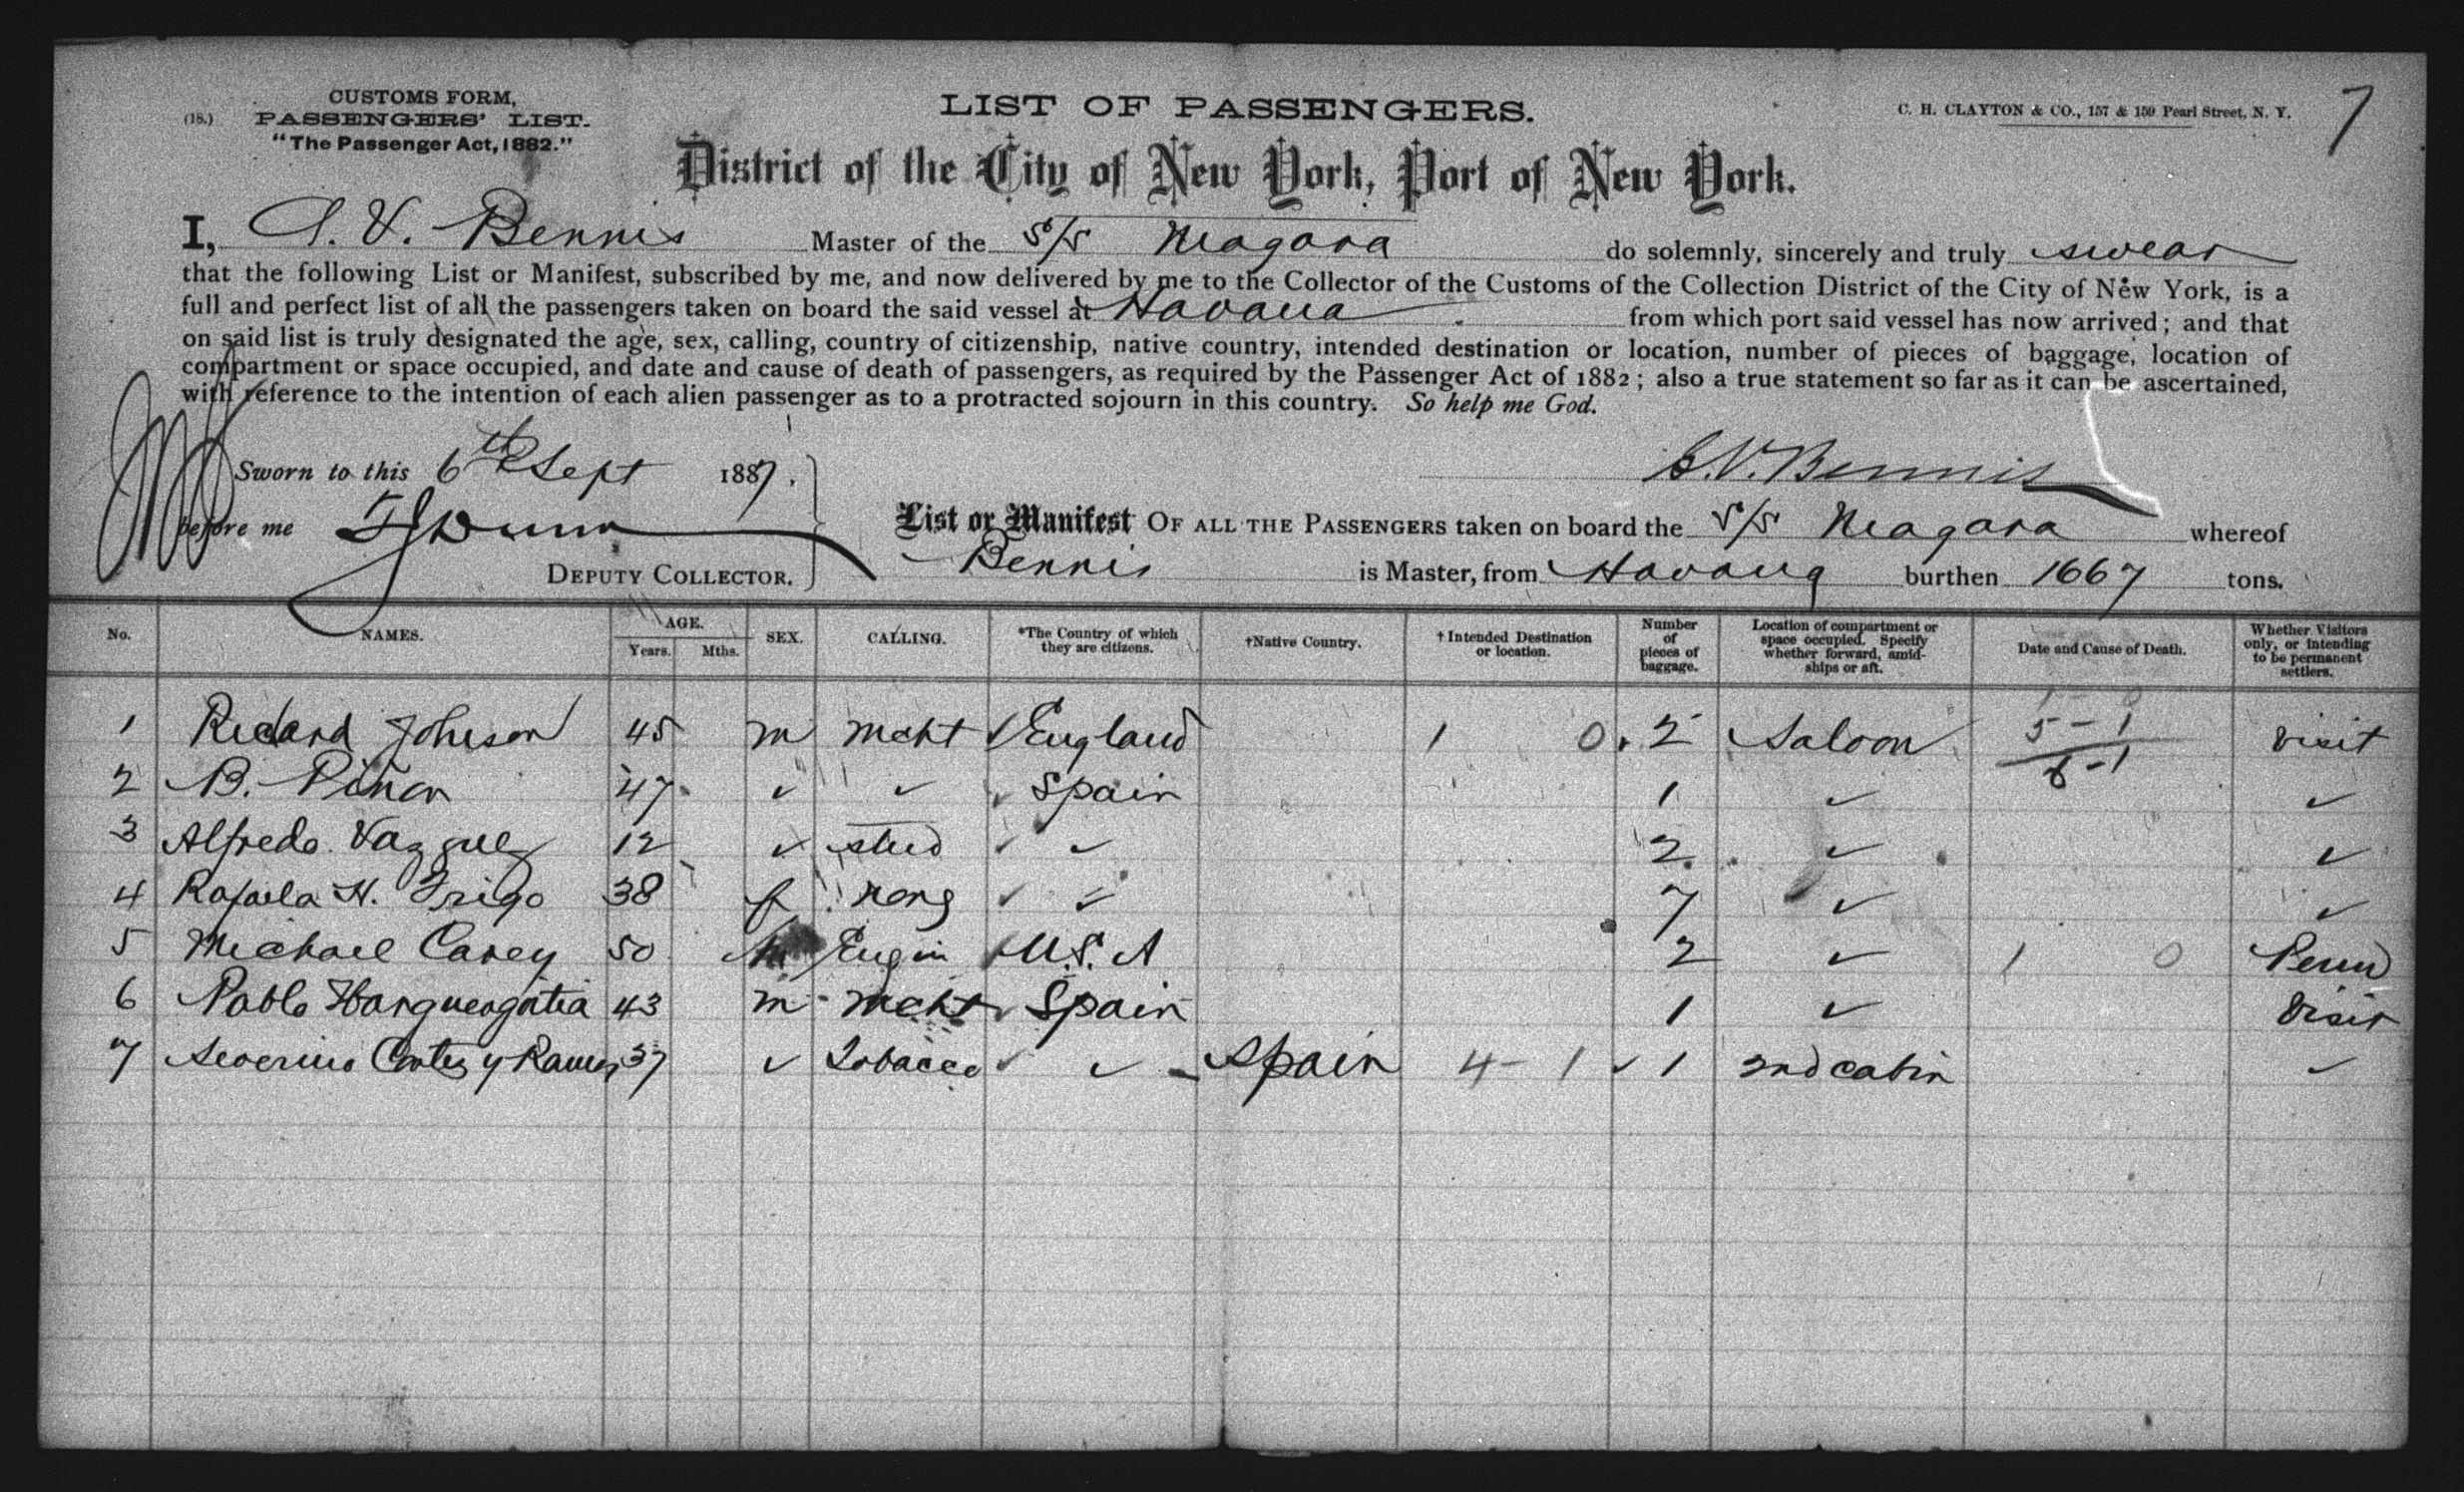 CUSTOMS FORM,
(18.) PASSENGERS' LIST.
"The Passenger Act, 1882."
LIST OF PASSENGERS.
C. H. CLAYTON & CO., 157 & 159 Pearl Street, N. Y.
7
District of the City of New York, Port of New York.
I, V. Bennis Master of the S/S Niagara do solemnly, sincerely and truly swear
that the following List or Manifest, subscribed by me, and now delivered by me to the Collector of the Customs of the Collection District of the City of New York, is a
full and perfect list of all the passengers taken on board the said vessel at Havana from which port said vessel has now arrived; and that
on said list is truly designated the age, sex, calling, country of citizenship, native country, intended destination or location, number of pieces of baggage, location of
compartment or space occupied, and date and cause of death of passengers, as required by the Passenger Act of 1882; also a true statement so far as it can be ascertained,
with reference to the intention of each alien passenger as to a protracted sojourn in this country. So help me God.
Sworn to this 6th Sept 1887.
V. Bennis
before me
DEPUTY COLLECTOR.
List or Manifest OF ALL THE PASSENGERS taken on board the S/S Niagara whereof
Bennis is Master, from Havana burthen 1667 tons.
No. NAMES. AGE. Years. Mths. SEX. CALLING. *The Country of which they are citizens. †Native Country. †Intended Destination or location. Number of pieces of baggage. Location of compartment or space occupied. Specify whether forward, amidships or aft. Date and Cause of Death. Whether Visitors only, or intending to be permanent settlers.
1 Richard Johnson 45 m mcht ✓ England 1 0 2 Saloon 5-1 visit
2 B. Piñon 47 ✓ ✓ ✓ Spain 1 ✓ 6-1 ✓
3 Alfredo Vazquez 12 ✓ stud ✓ ✓ 2 ✓ ✓
4 Rafaela H. Trigo 38 f none ✓ ✓ 7 ✓ ✓
5 Michael Carey 50 m Engin ✓ U.S. A 2 ✓ 1 0 Perm
6 Pablo 43 m mcht ✓ Spain 1 ✓ visit
7 Severino Cortes y 37 ✓ Tobacco ✓ ✓ - Spain 4-1 ✓ 1 2nd cabin ✓